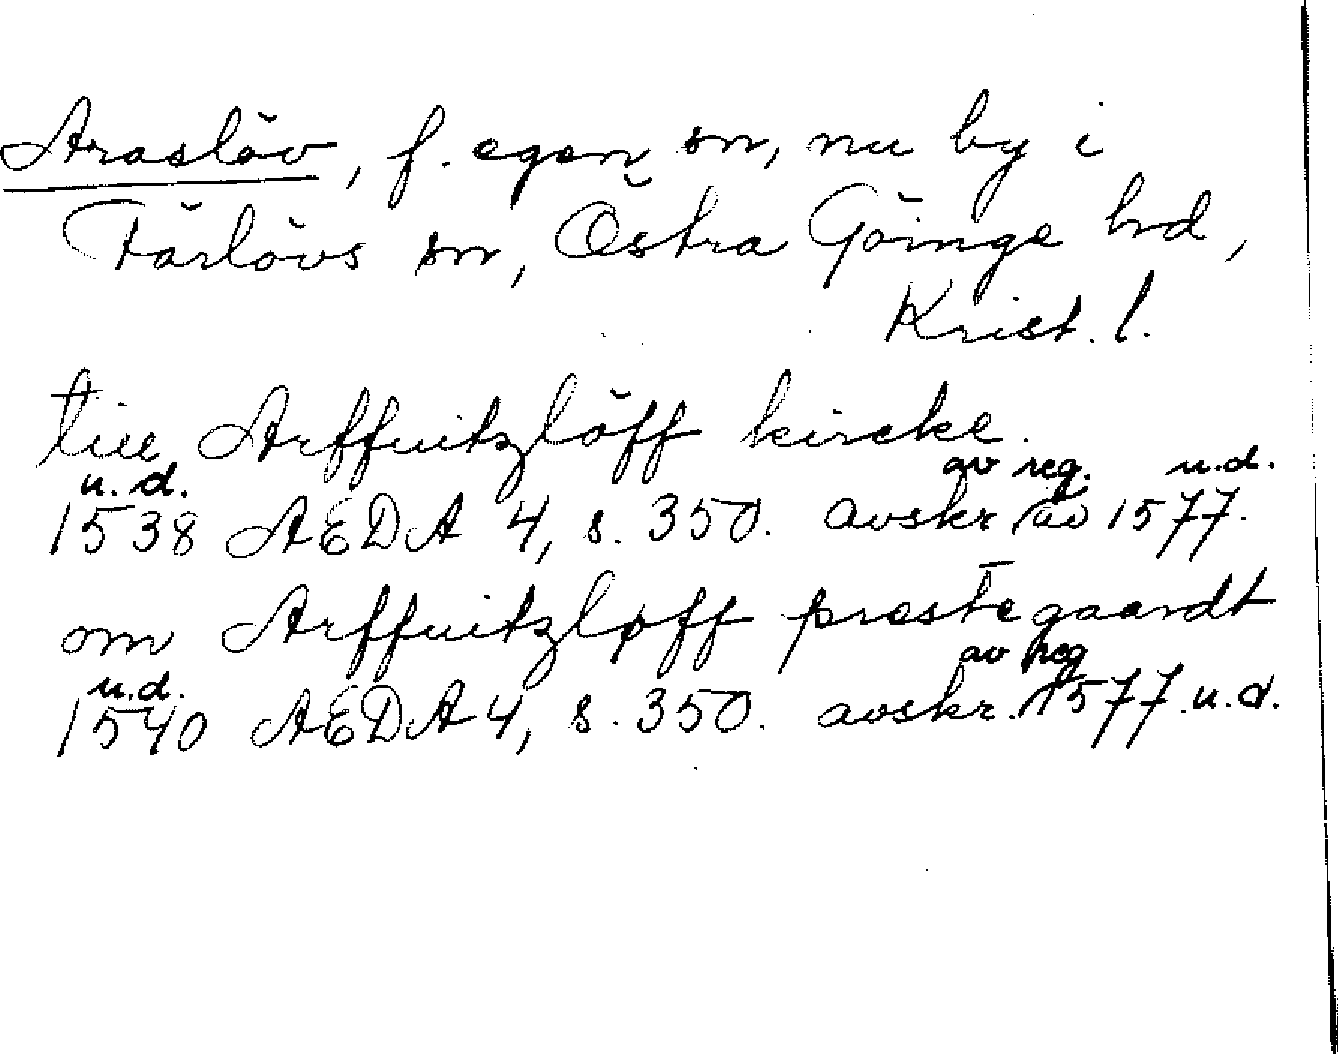 Araslöv, f. egen sn, nu by i
Färlövs sn, Östra Göinge hd,
Krist. l.
till Arffuitzlöff kircke.
u.d. av reg. u.d.
1538 AEDA 4, s. 350. avskr av 1577.
om Arffuitzløff prestegaardt
u.d. av reg
1540 AEDA 4, s. 350. avskr. 1577 u.d.